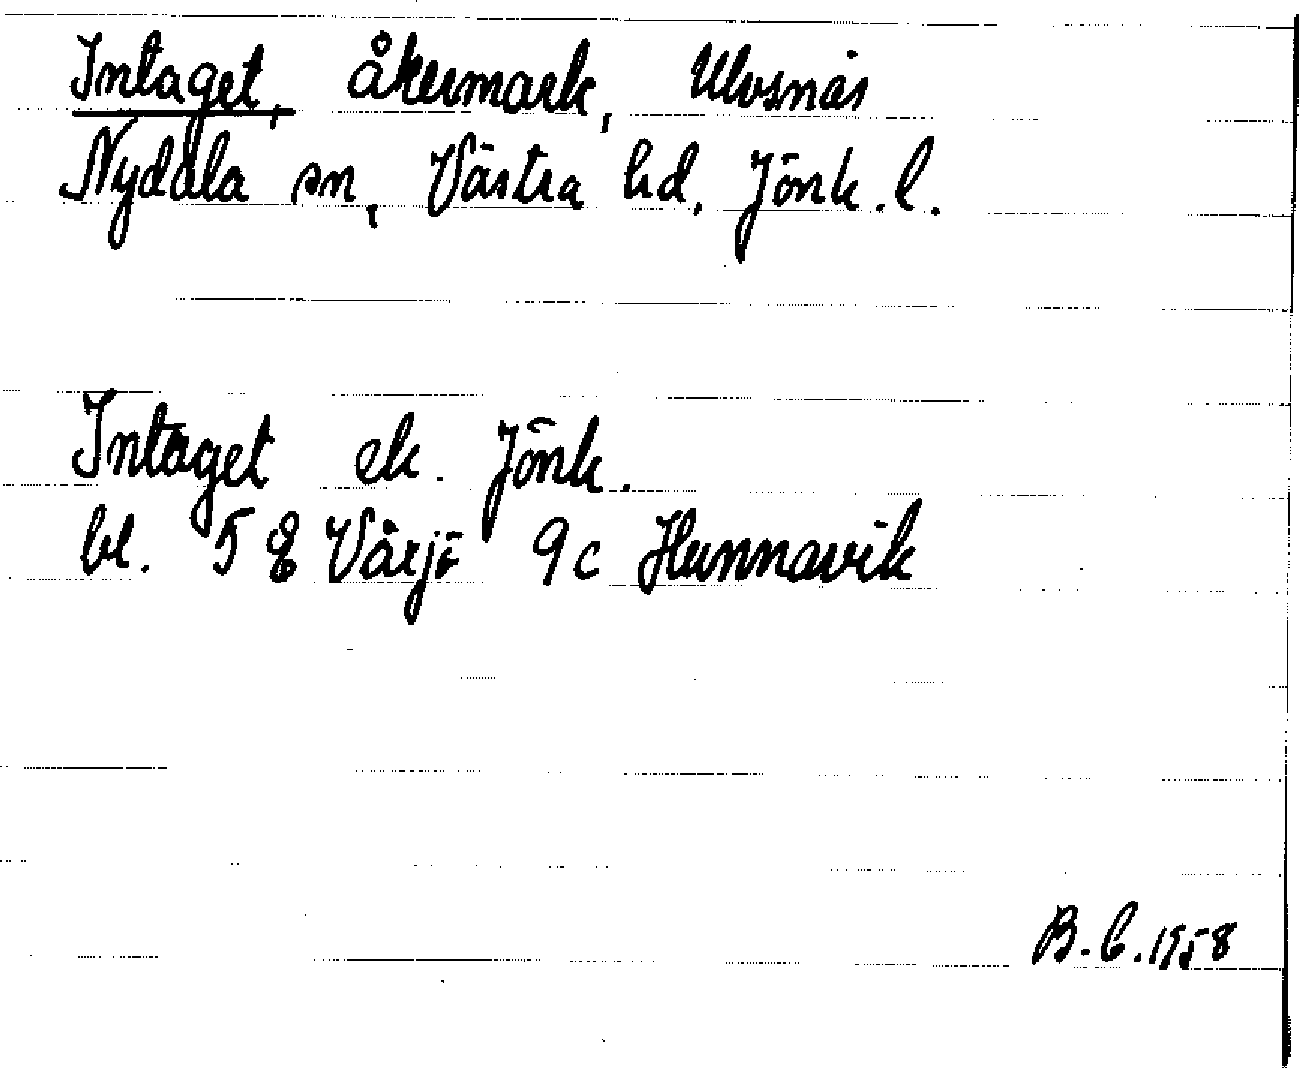 Intaget, åkermark, Ulvsnäs
Nydala sn, Västra hd. Jönk.l.
Intaget ek. Jönk.
bl. 5 E Värjö 9c Hunnavik
B.C.1958